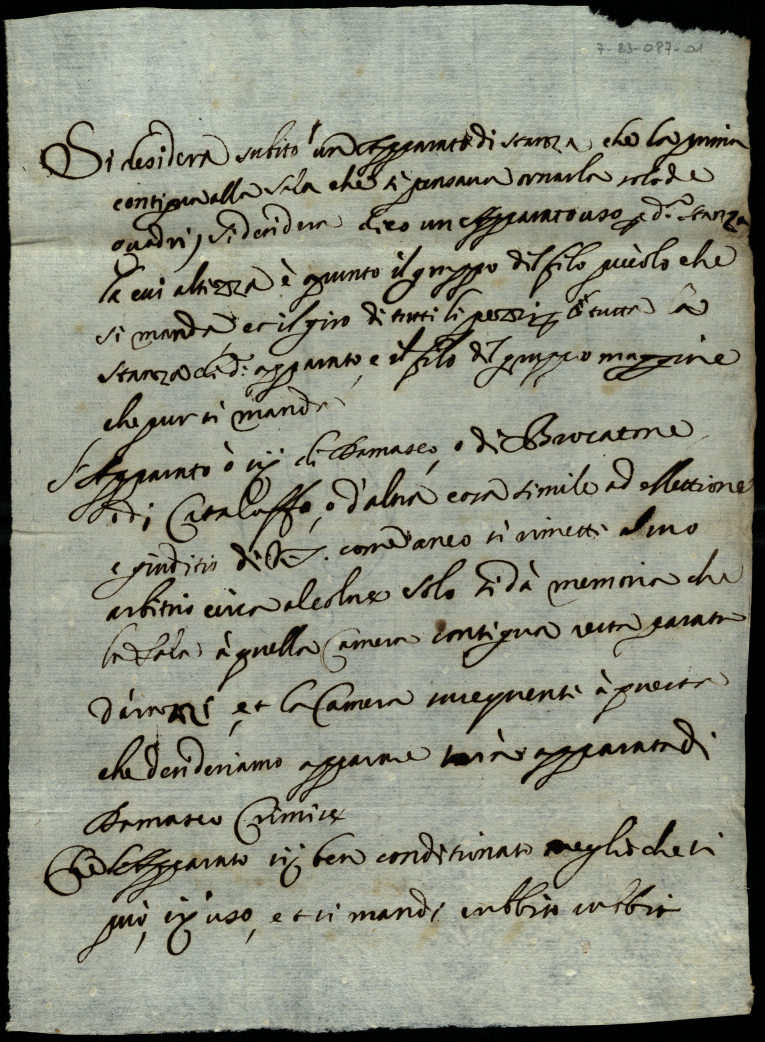 7-83-087-01
Si desidera subito un Apparato di stanza che la prima
contigua alla sala che si pensava ornarla solo de
quadri, si desidera dico un Apparato uso p d.ª stanza
la cui altezza è giunto il gruppo del filo piccolo che
si manda, et il giro di tutti li pezzi p tutta la
stanza di d.º apparato e il filo del gruppo maggiore
che pur si manda
L'Apparato ò sij di Damasco, o di Brocatone
o di Cataluffo, o d'altra cosa simile ad elettione
e giuditio di V.S. come anco si rimette al suo
arbitrio circa al colore solo si dà memoria che
la sala à quella Camera contigua resta parata
d'arazzi, et la Camera susequente à questa
che desideriamo apparare sarà apparata di
Damasco Crimice
Che l'Apparato sij ben conditionato meglio che si
può, sij uso, et si mandi subbito subbito